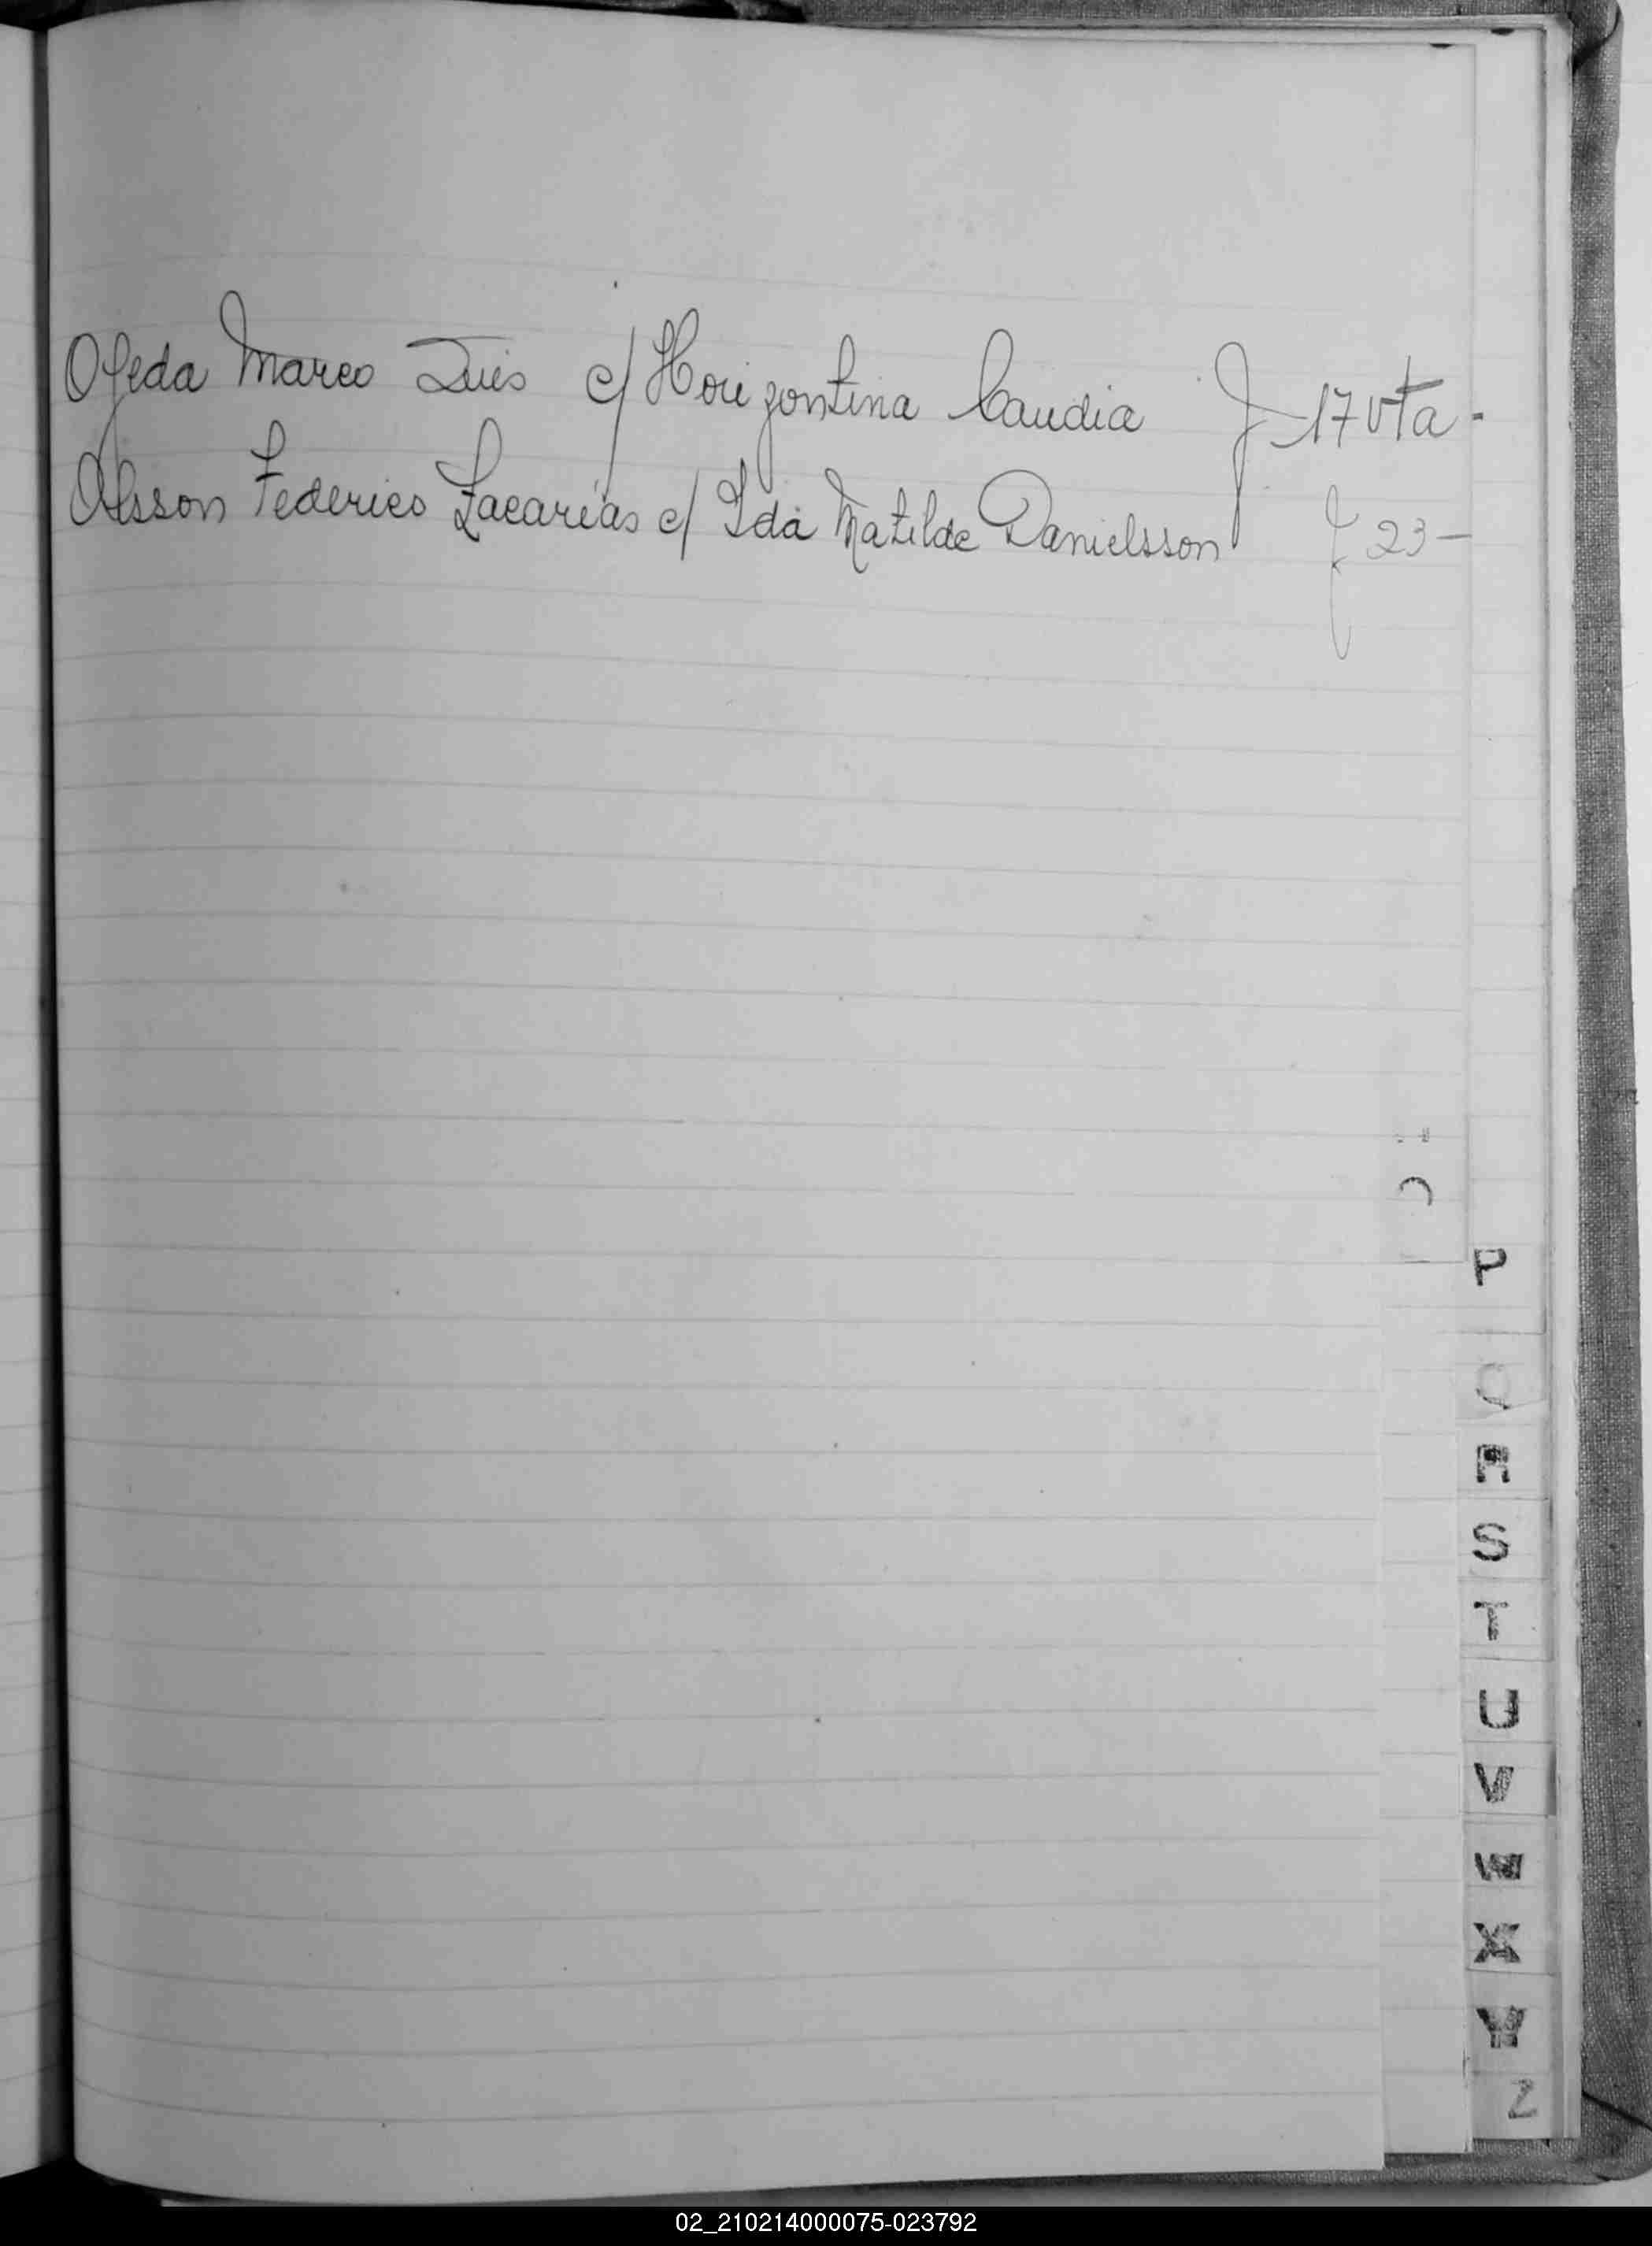 Ojeda Marco Luis c/ Horizontina Caudia f 17 vta.
Olsson Federico Zacarías c/ Ida Matilde Danielsson f 23-
O
P
Q
R
S
T
U
V
W
X
Y
Z
02_210214000075-023792